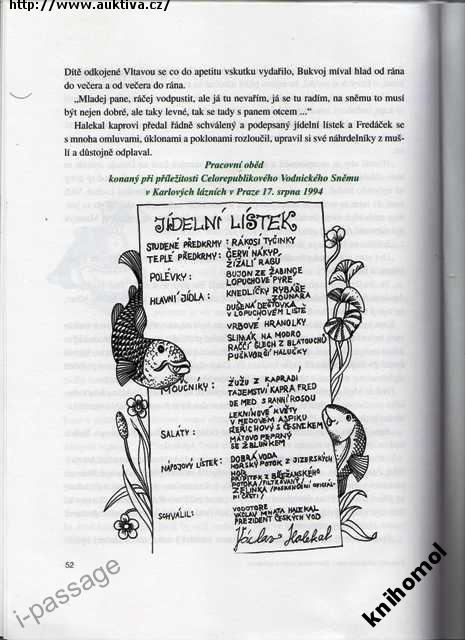 http://www.auktiva.cz/
Dítě odkojené Vltavou se co do apetitu vskutku vydařilo, Bukvoj míval hlad od rána
do večera a od večera do rána.
„Mladej pane, ráčej vodpustit, ale já tu nevařím, já se tu radím, na sněmu to musí
být nejen dobré, ale taky levné, tak se tady s panem otcem ..."
Halekal kaprovi předal řádně schválený a podepsaný jídelní lístek a Fredáček se
s mnoha omluvami, úklonami a poklonami rozloučil, upravil si své náhrdelníky z muš-
lí a důstojně odplaval.
Pracovní oběd
konaný při příležitosti Celorepublikového Vodnického Sněmu
v Karlových lázních v Praze 17. srpna 1994
JÍDELNÍ LÍSTEK
STUDENÉ PŘEDKRMY: RÁKOSÍ TYČINKY
TEPLÉ PŘEDKRMY: ČERVÍ NÁKYP
ŽÍŽALÍ RAGÚ
POLÉVKY: BUJON ZE ŽABINCE
LOPUCHOVÉ PYRÉ
HLAVNÍ JÍDLA: KNEDLÍČKY RYBÁŘE
ZOUNARA
DUŠENÁ DEŠŤOVKA
V LOPUCHOVÉM LISTĚ
VRBOVÉ HRANOLKY
SLIMÁK NA MODRO
RAČČÍ ŠLECH Z BLATOUCHŮ
PUŠKVORČÍ HALUČKY
MOUČNÍKY: ŽUŽU Z KAPRADÍ
TAJEMSTVÍ KAPRA FRED
DE MED S RANNÍ ROSOU
LEKNÍNOVÉ KVĚTY
V MEDOVÉM ASPIKU
SALÁTY: ŘEŘICHOVÝ S ČESNEKEM
MÁTOVO PEPRNÝ
SE ŽBLUŇKEM
NÁPOJOVÝ LÍSTEK: DOBRÁ VODA
HORSKÝ POTOK Z JIZERSKÝCH
HOR
POTOKA /FILTROVANÝ/
ZELINKA
SCHVÁLIL: VODOTORE
VÁCLAV HALEKAL
PREZIDENT ČESKÝCH VOD
Václav Halekal
52
i-passage
knihomol